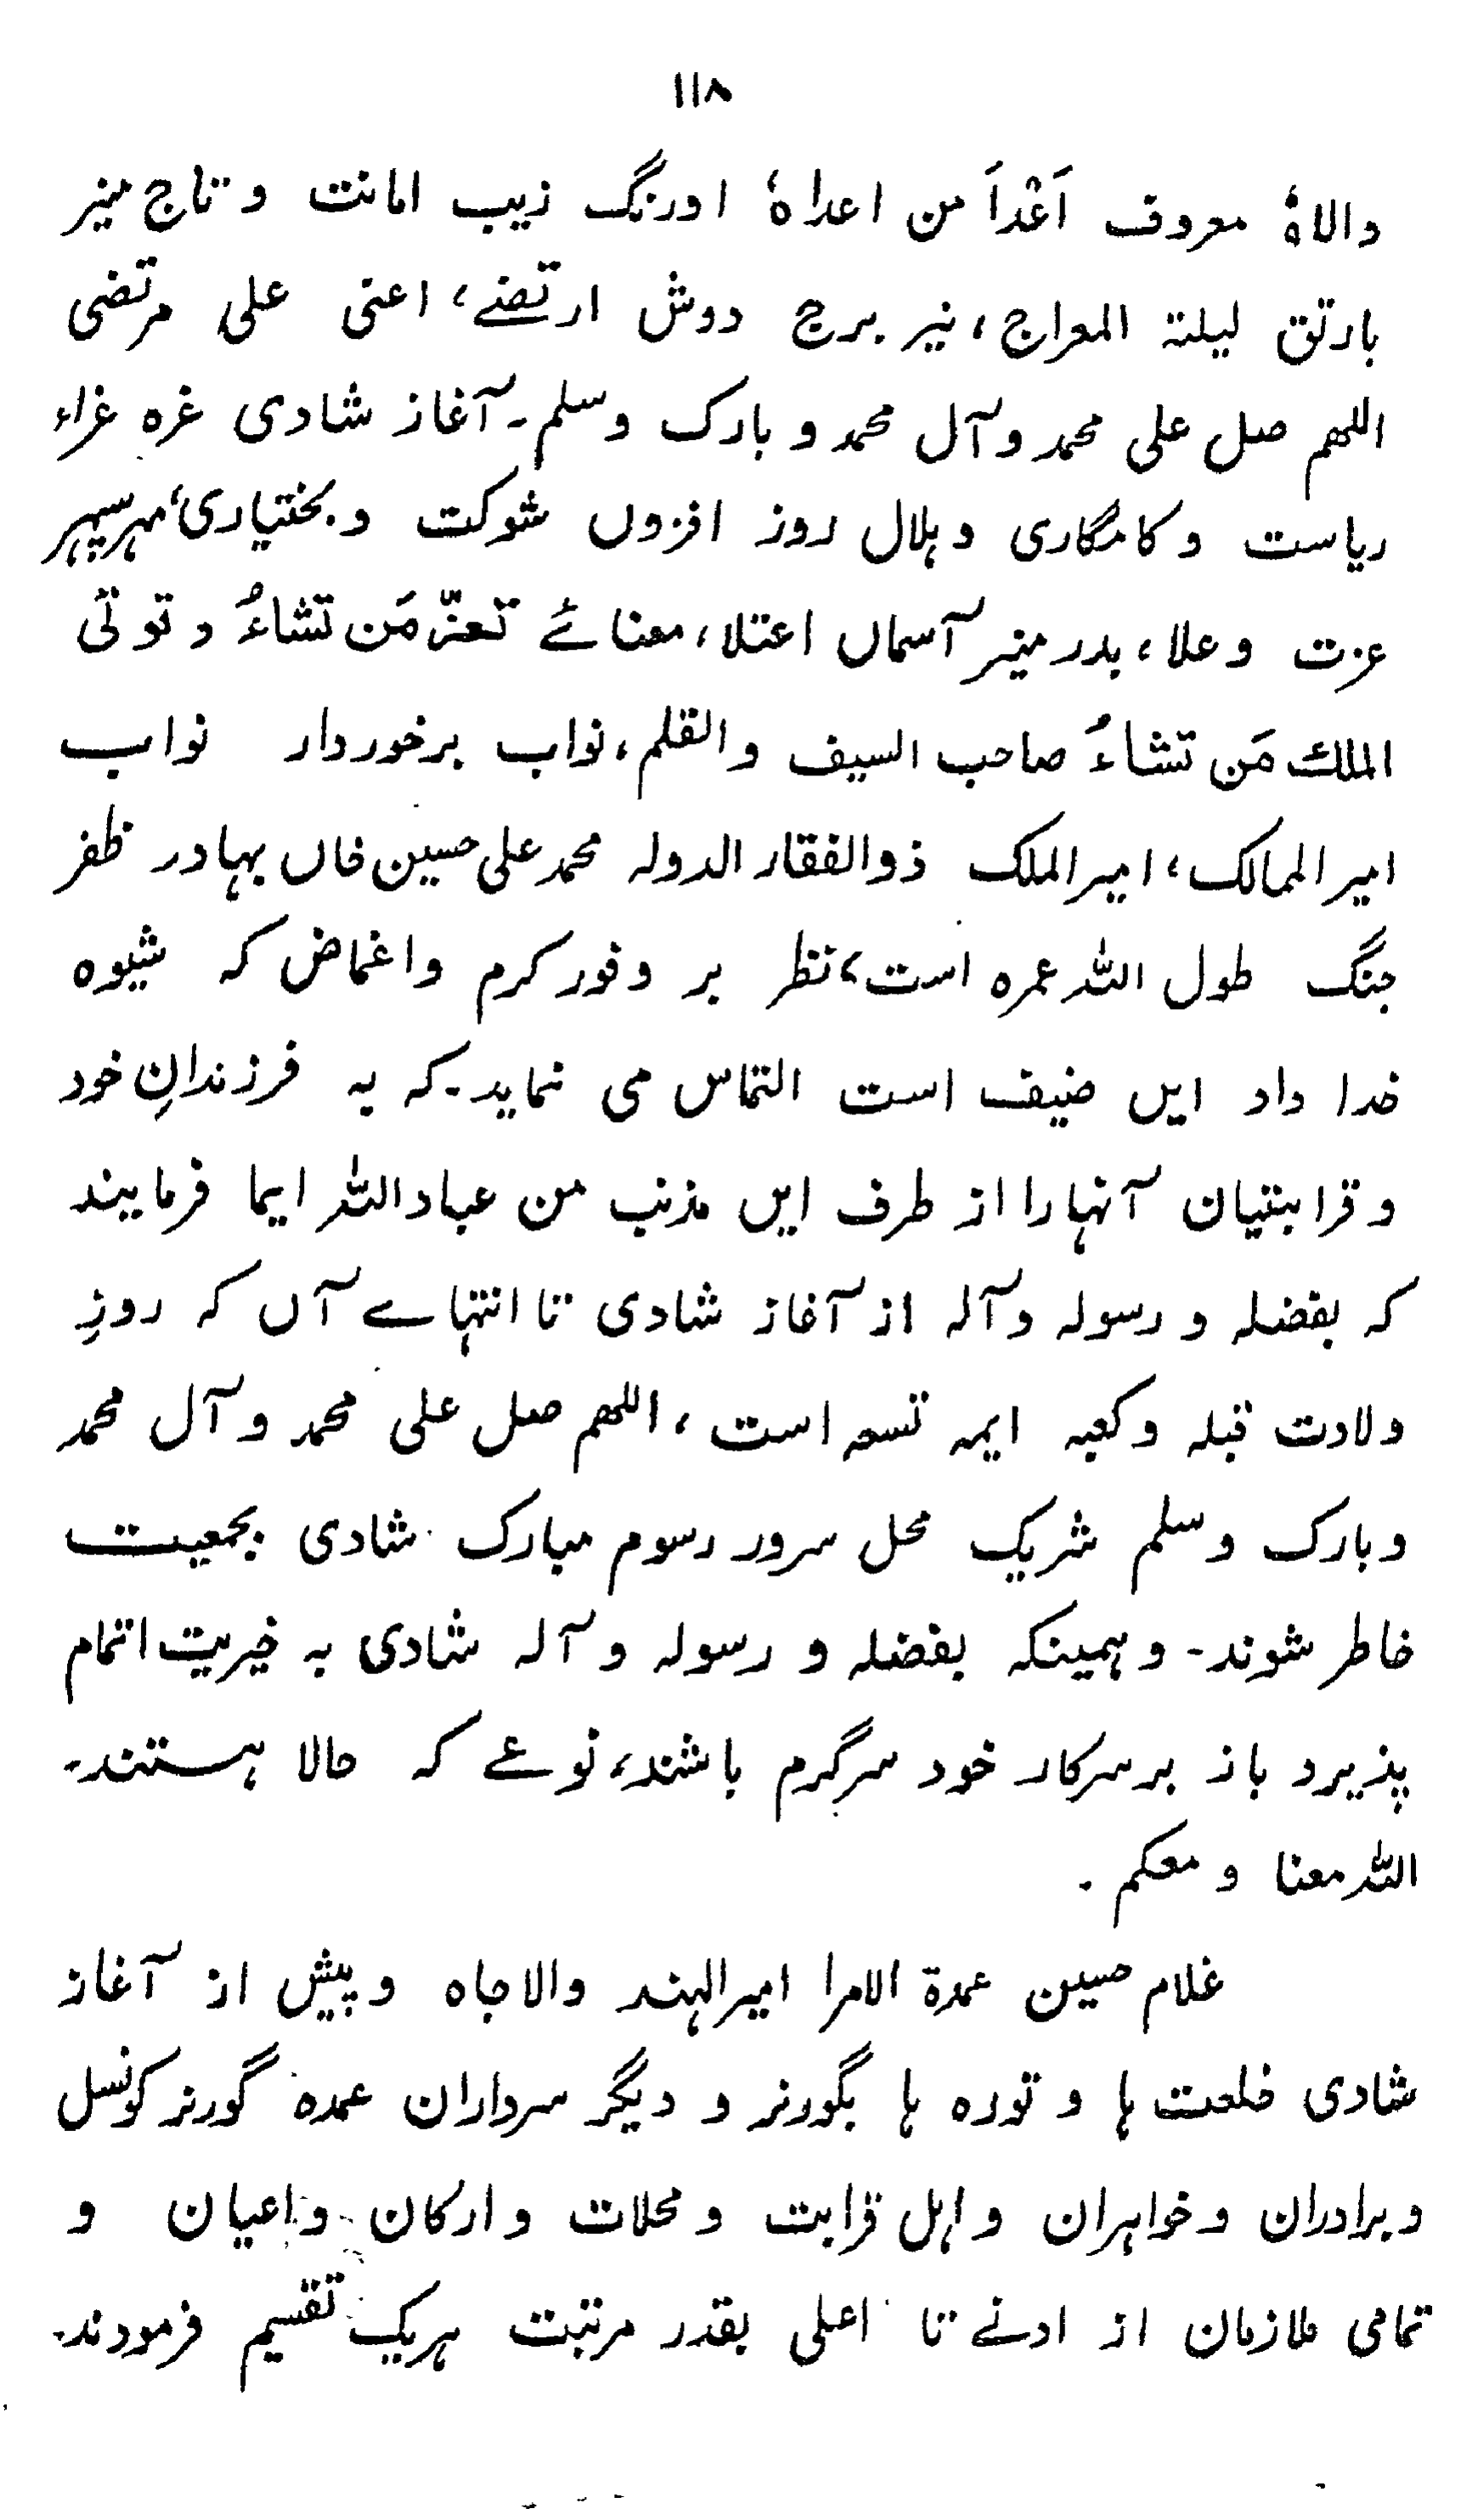 ۱۱۸
والاہٗ معروف اَعْداَ من اعداہٗ اورنگ زیب امانت و تاج میز
بارتق لیلۃ المعراج، نیر برج دوش ارتضٰے، اعنی علی مرتضی
اللھم صل علی محمد وآل محمد و بارک وسلم۔ آغاز شادی غرہ غراء
ریاست و کامگاری و ہلال روز افزوں شوکت و بختیاری، مہر سپہر
عزت وعلا، بدر منیر آسماں اعتلا، معنائے تعزّ مَن تشاءُ و توتی
الملک مَن تشاءُ صاحب السیف والقلم، نواب برخوردار نواب
امیر الممالک، امیر الملک ذوالفقار الدولہ محمد علی حسین خاں بہادر ظفر
جنگ طول اللہ عمرہ است، نظر بر وفور کرم واغماض کہ شیوہ
خدا داد ایں ضیف است التماس می نماید۔ کہ بہ فرزندانِ خود
و قرابتیان آنہارا از طرف ایں مذنب من عباد اللہ ایما فرمایند
کہ بفضلہ و رسولہ وآلہ از آغاز شادی تا انتہاے آں کہ روزِ
ولادت قبلہ وکعبہ ایمہ تسعہ است، اللھم صل علی محمد وآل محمد
وبارک وسلم شریک محل سرور رسوم مبارک شادی بجمعیت
خاطر شوند۔ وہمینکہ بفضلہ و رسولہ وآلہ شادی بہ خیریت اتمام
پذیرد باز برسرکار خود سرگرم باشند، نوعے کہ حالا ہستند۔
اللہ معنا و معکم.
غلام حسین عمدۃ الامرا امیر الہند والا جاہ و پیش از آغاز
شادی خلعت ہا و تورہ ہا بگورنر و دیگر سرداران عمدہ گورنر کونسل
و برادران و خواہران و اہل قرابت و محلات و ارکان و اعیان و
تمامی ملازمان از ادنے تا اعلی بقدر مرتبت ہریک تقسیم فرمودند۔